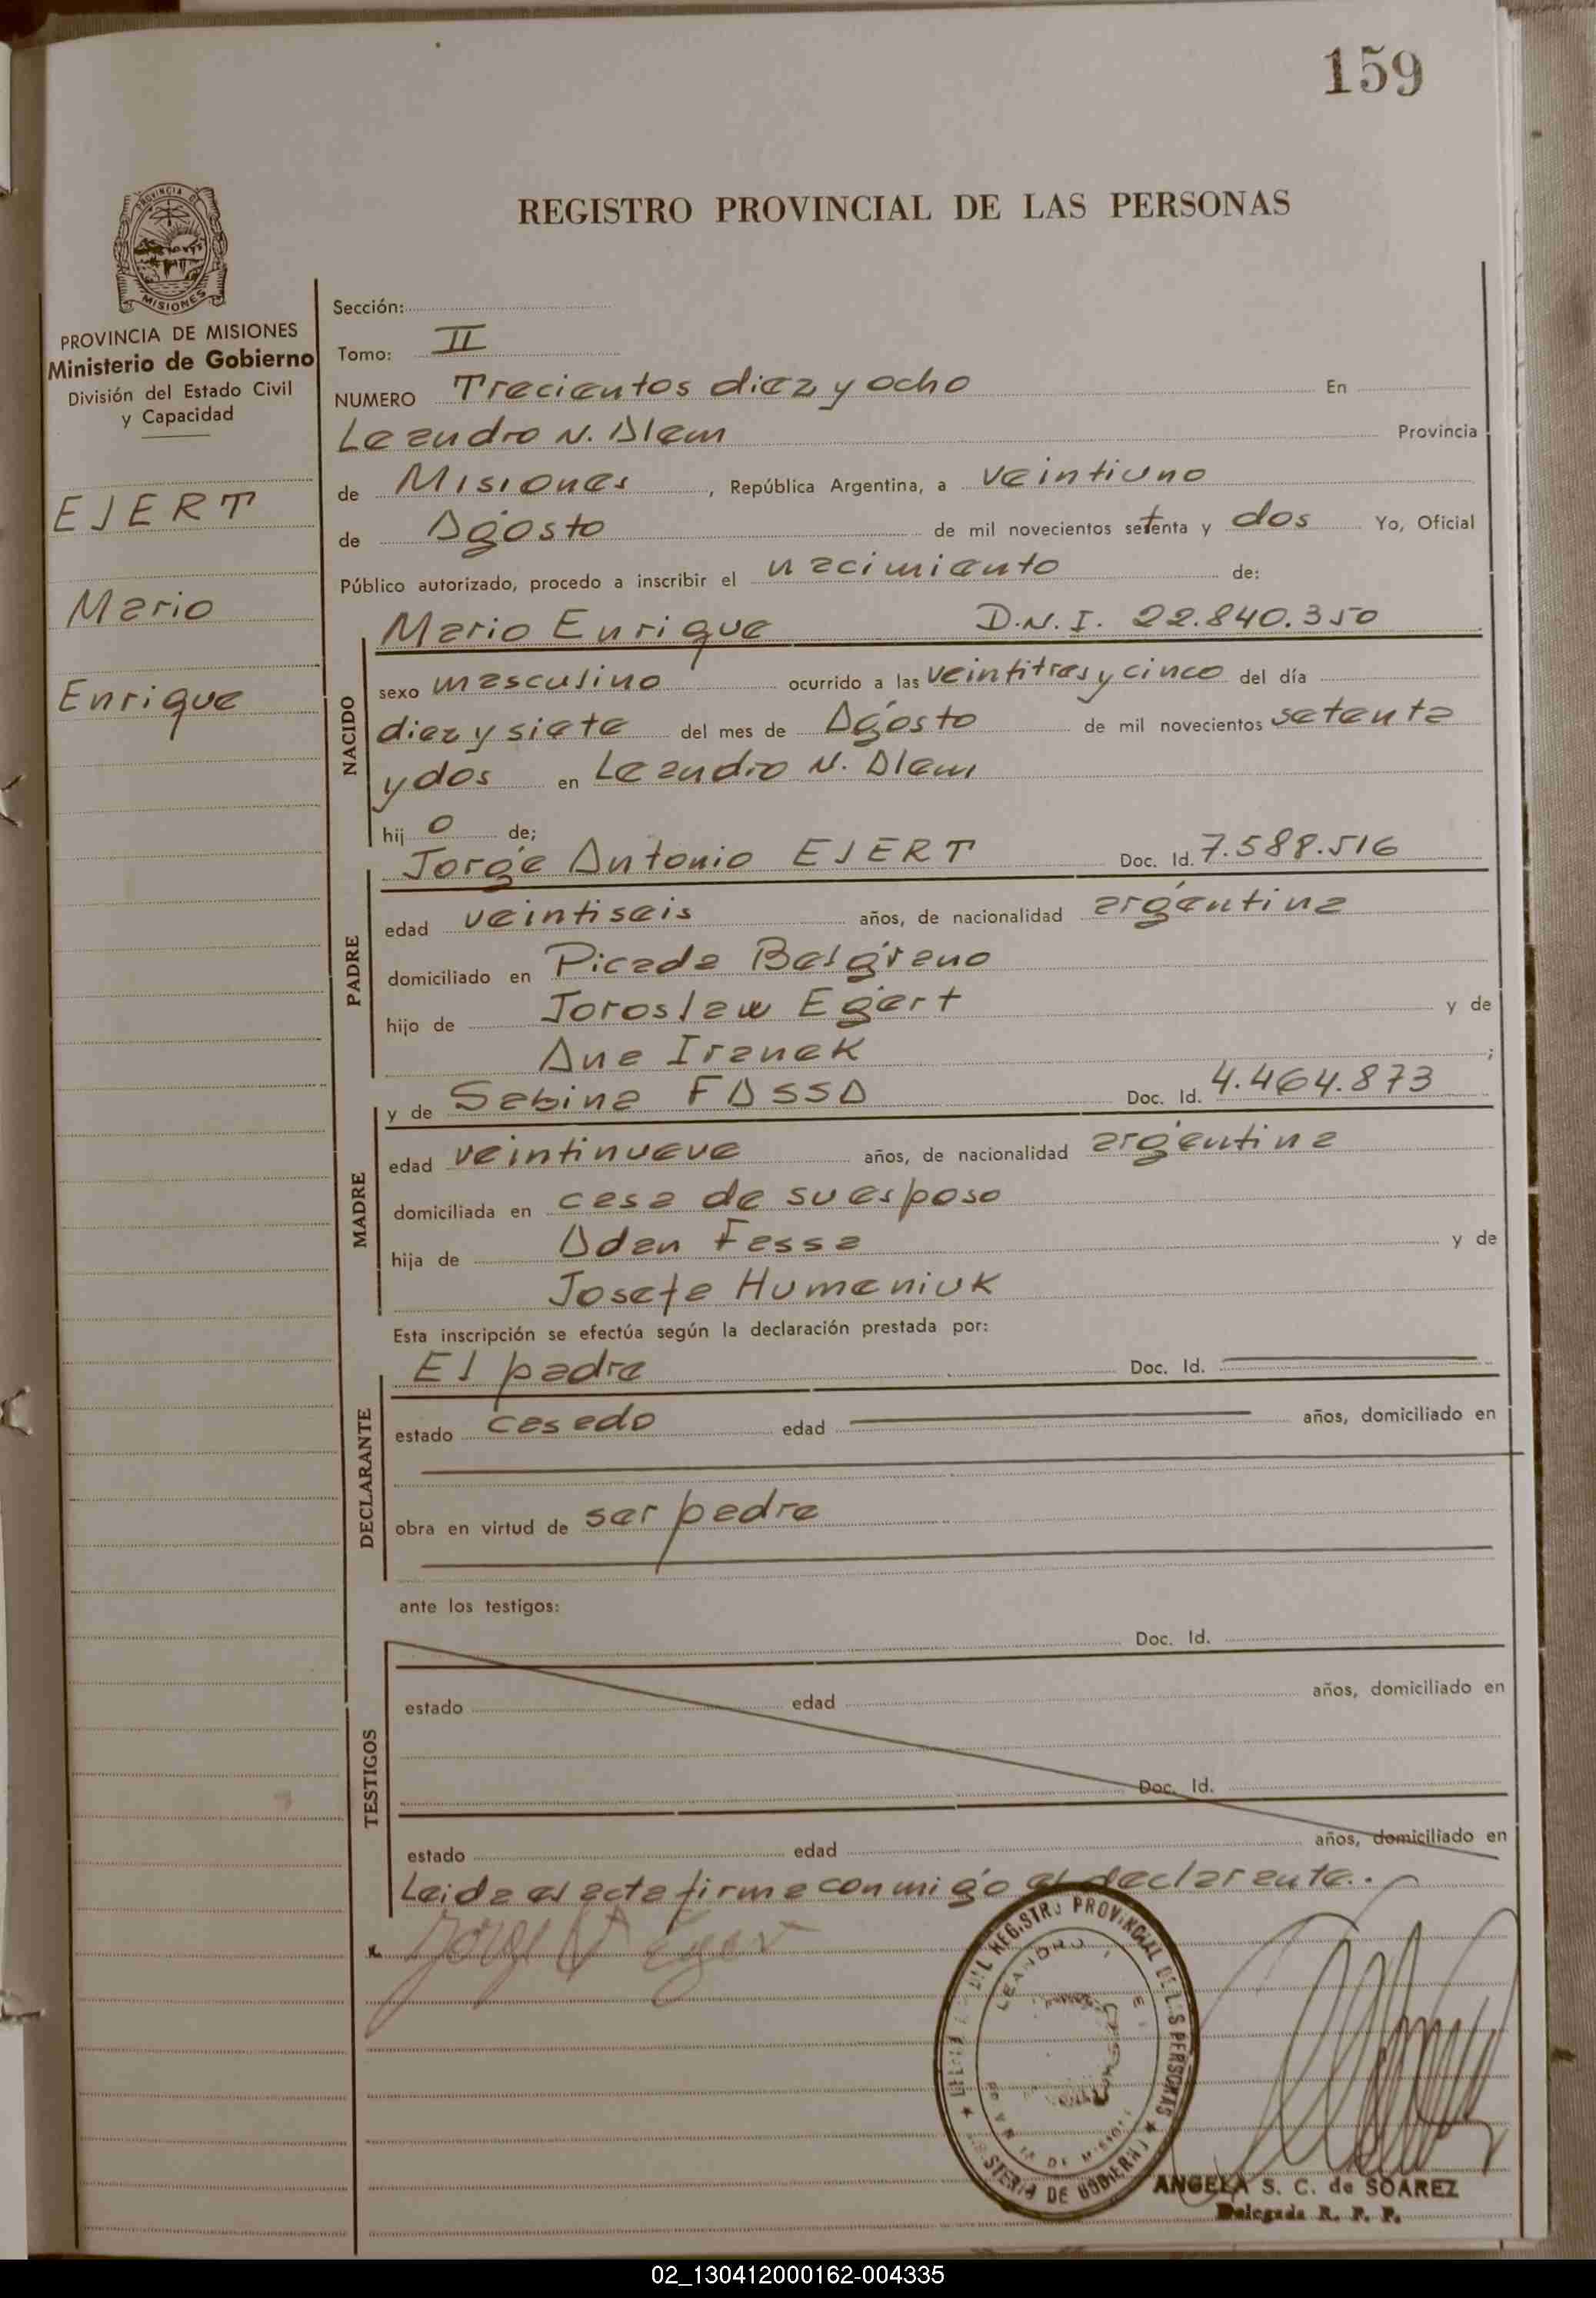 159
REGISTRO PROVINCIAL DE LAS PERSONAS
PROVINCIA DE
MISIONES
PROVINCIA DE MISIONES
Ministerio de Gobierno
División del Estado Civil
y Capacidad
EJERT
Mario
Enrique
Sección:
Tomo: II
NUMERO Trecientos diez y ocho En
Leandro N. Alem Provincia
de Misiones, República Argentina, a veintiuno
de Agosto de mil novecientos setenta y dos Yo, Oficial
Público autorizado, procedo a inscribir el nacimiento de:
Mario Enrique D.N.I. 22.840.350
NACIDO
sexo masculino ocurrido a las veintitres y cinco del día
diez y siete del mes de Agosto de mil novecientos setenta
y dos en Leandro N. Alem
hij o de;
Jorge Antonio EJERT Doc. Id. 7.588.516
PADRE
edad veintiseis años, de nacionalidad argentina
domiciliado en Picada Belgrano
hijo de Joroslaw Egert y de
Ana Iranek ;
y de Sabina FASSA Doc. Id. 4.464.873
MADRE
edad veintinueve años, de nacionalidad argentina
domiciliada en casa de su esposo
hija de Adan Fassa y de
Josefa Humeniuk
Esta inscripción se efectúa según la declaración prestada por:
El padre Doc. Id.
DECLARANTE
estado casado edad años, domiciliado en
obra en virtud de ser padre
ante los testigos:
Doc. Id.
TESTIGOS
estado edad años, domiciliado en
Doc. Id.
estado edad años, domiciliado en
Leida el acta firma conmigo el declarante..
REGISTRO PROVINCIAL DE LAS PERSONAS
LEANDRO
DE GOBIERNO
ANGELA S. C. de SOAREZ
Delegada R. P. P.
02_130412000162-004335